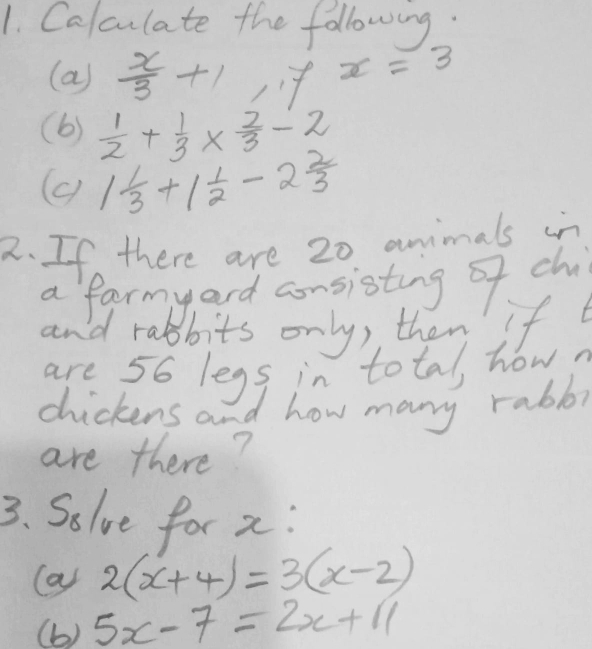 1. Calculate the following.
(a) x/3 + 1, if x = 3
(b) 1/2 + 1/3 × 2/3 - 2
(c) 1 1/3 + 1 1/2 - 2 2/3
2. If there are 20 animals in
a farmyard consisting of
and rabbits only, then if
are 56 legs in total, how
chickens and how many
are there?
3. Solve for x:
(a) 2(x+4) = 3(x-2)
(b) 5x - 7 = 2x + 11